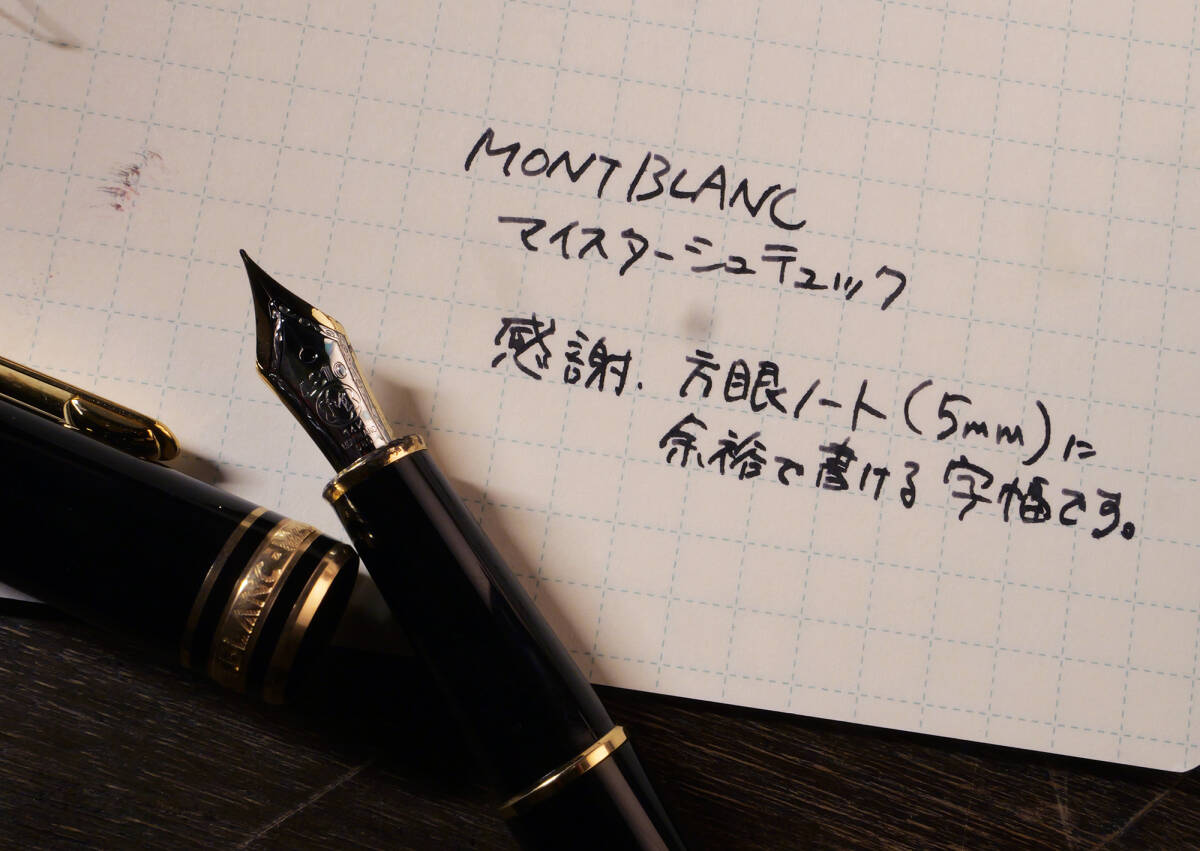 MONTBLANC
マイスターシュテュック
感謝、方眼ノート(5mm)に
余裕で書ける字幅です。
BLANC-M